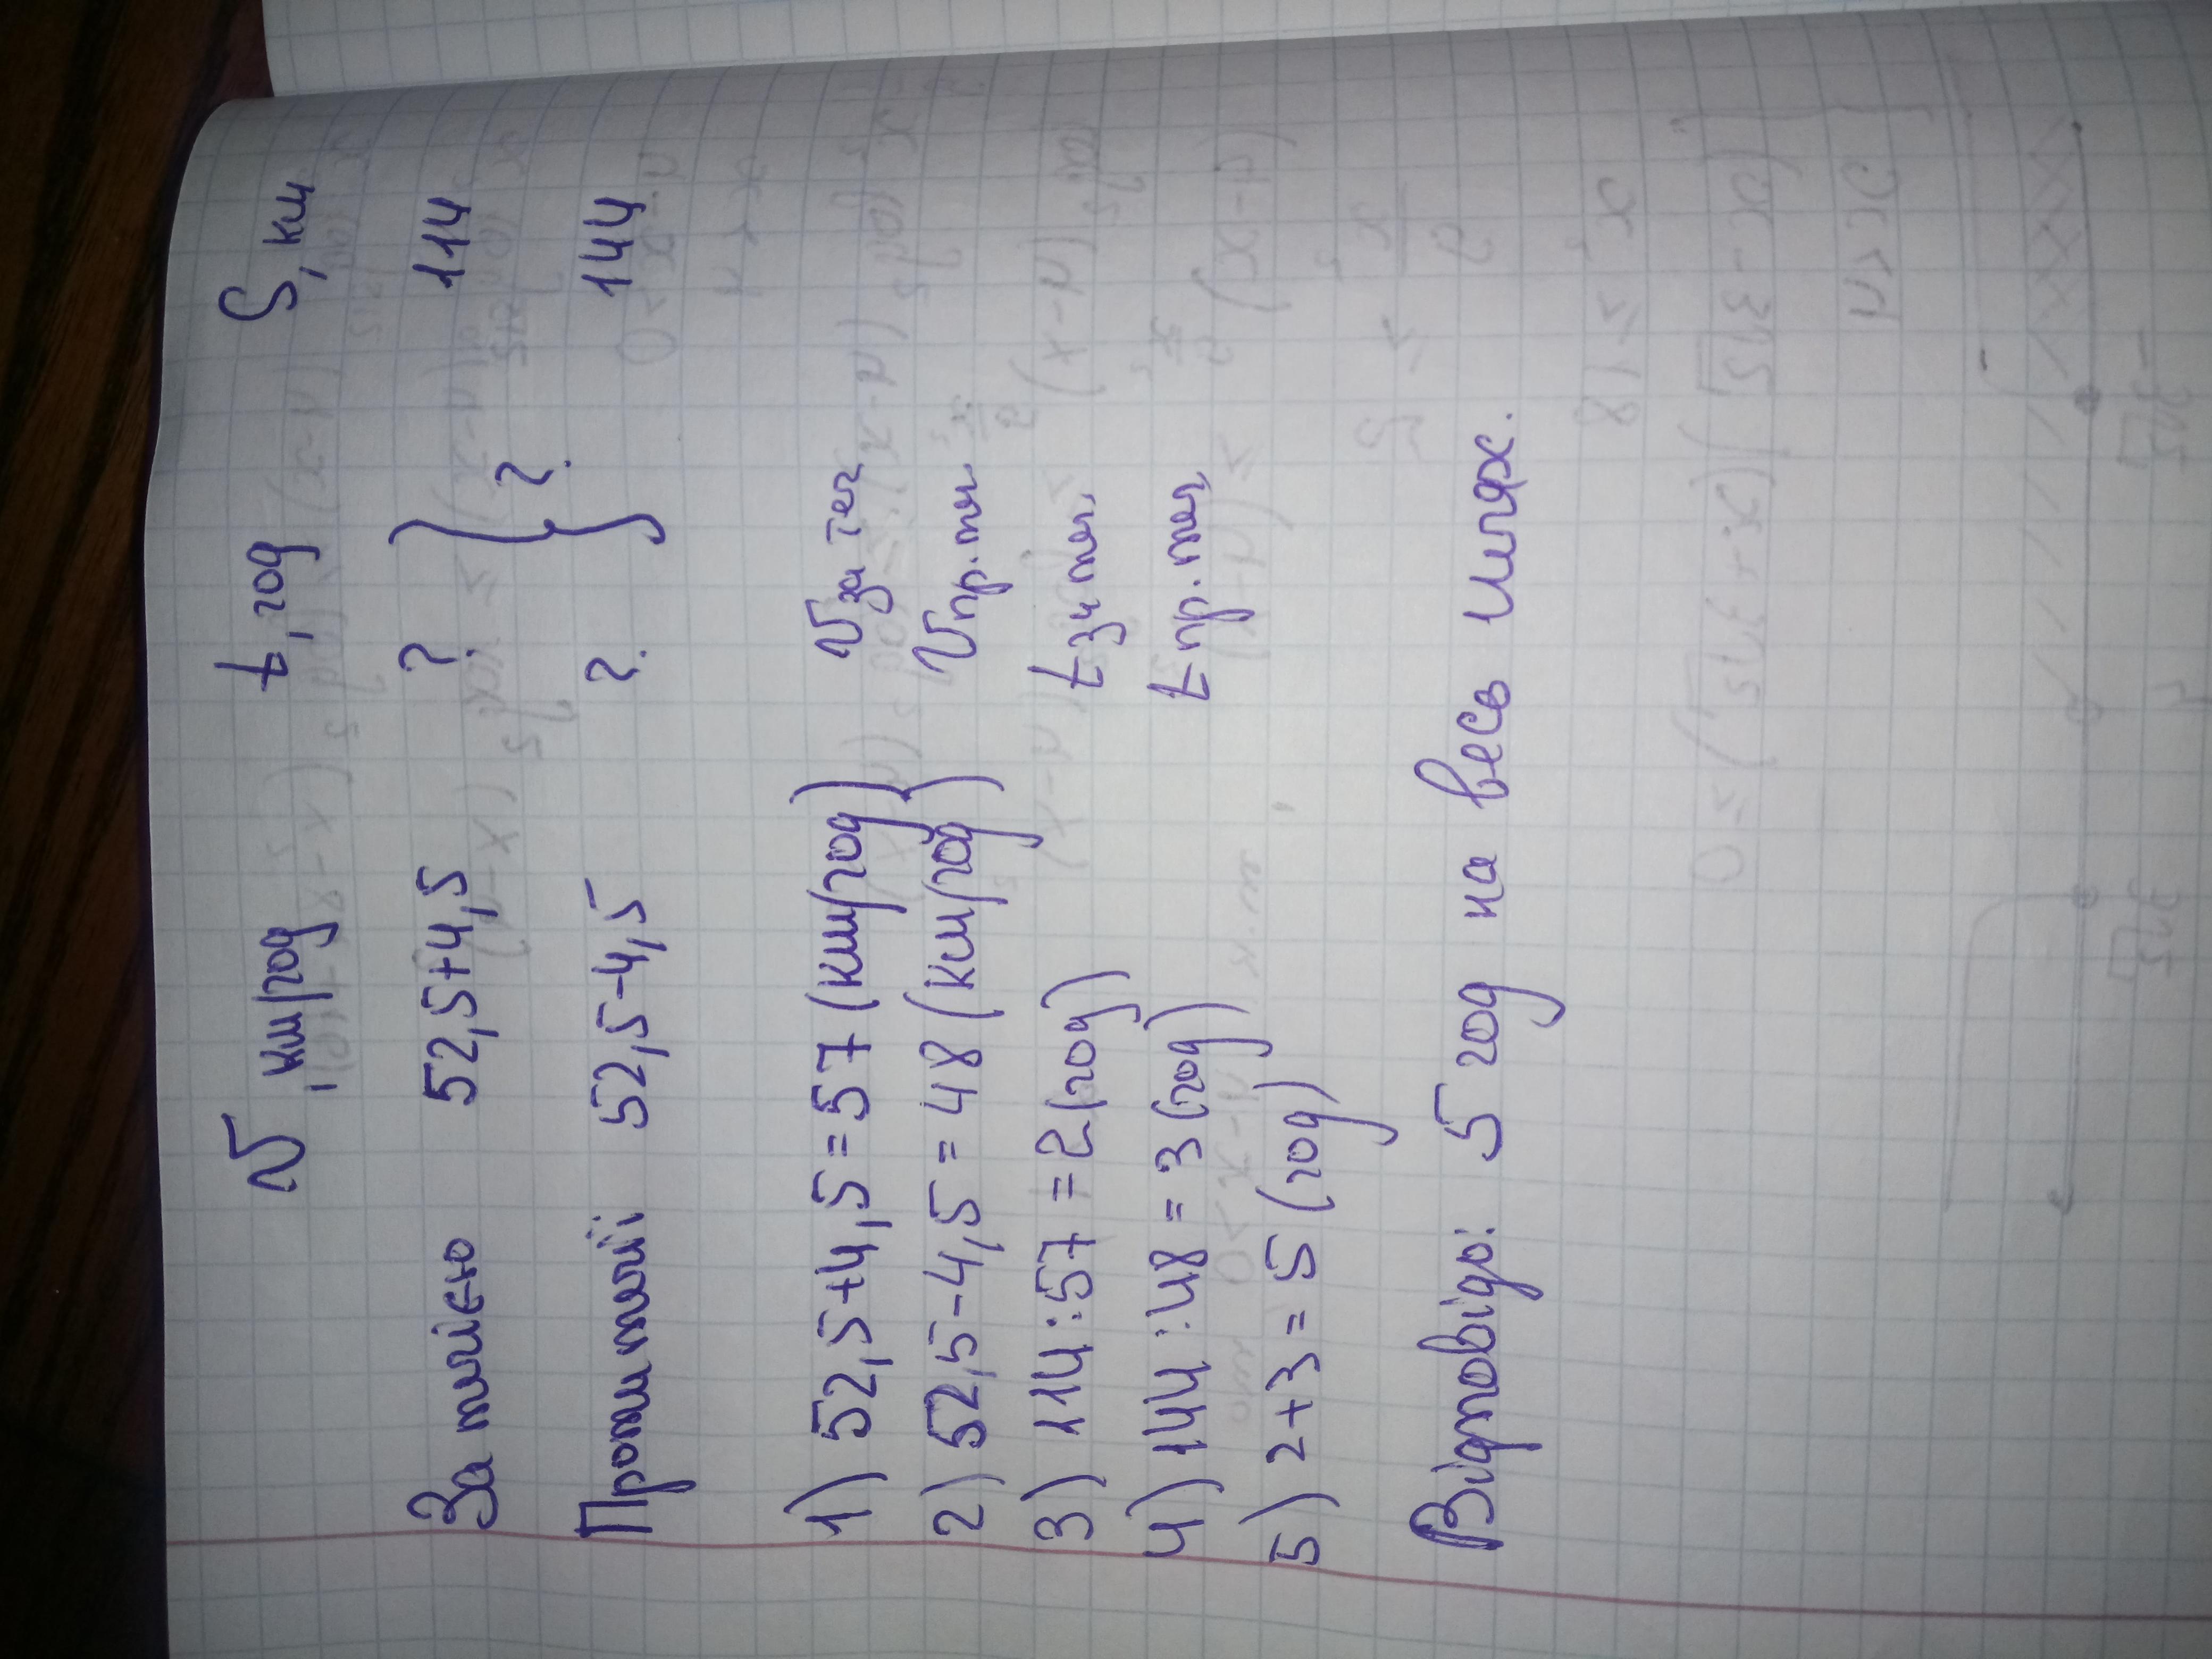 V, км/год t, год S, км
За течією 52,5+4,5 ? 114
?
Проти течії 52,5-4,5 ? 144
1) 52,5+4,5=57 (км/год) Vза теч
2) 52,5-4,5=48 (км/год) Vпр. теч
3) 114:57=2(год) tза теч.
4) 144:48=3(год) tпр. теч
5) 2+3=5 (год)
Відповідь: 5 год на весь шлях.